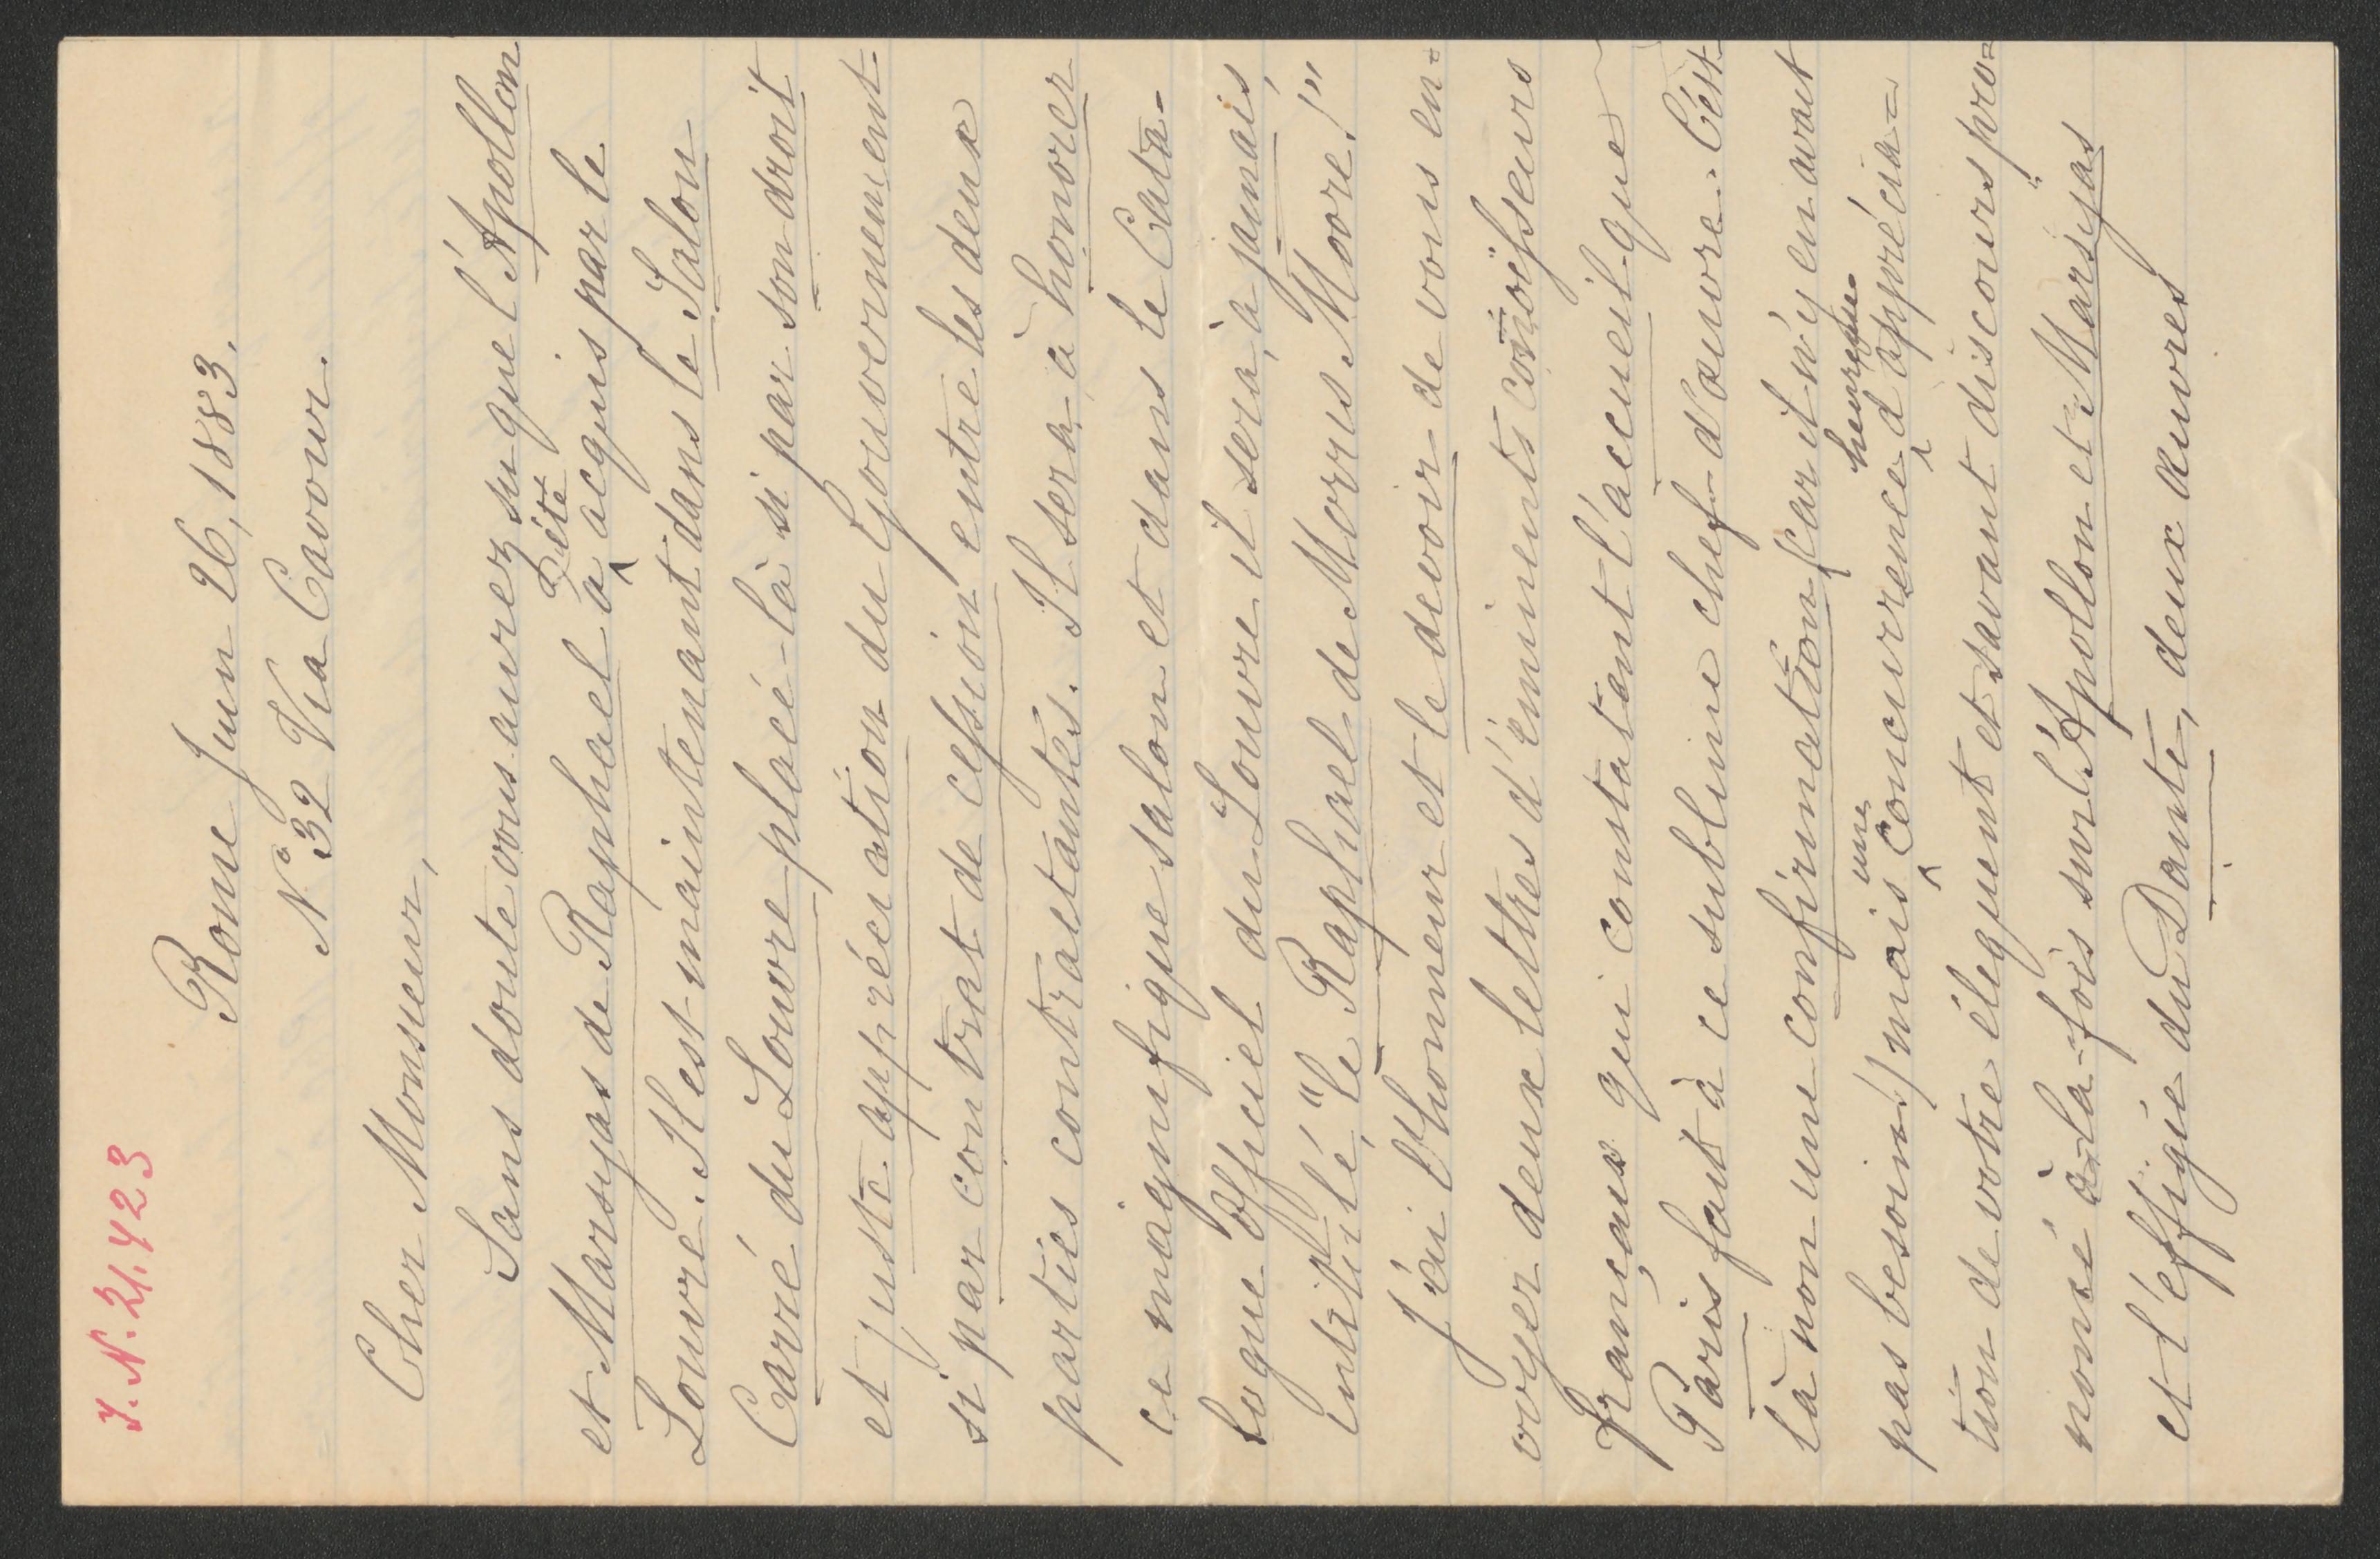 I. N. 21.423
Rome Juin 26, 1883.
N° 32 Via Cavour.
Cher Monsieur,
Sans doute vous aurez su que l'Apollon
et Marsyas de Raphael a été acquis par le
Louvre. Il est maintenant dans le Salon
Carré du Louvre placé-là si par son droit
et juste appréciation du Gouvernement
si par contrat de cession entre les deux
parties contractantes. Il sera à honorer
ce magnifique salon et dans le Cata-
logue officiel du Louvre il sera, à jamais,
intitulé "le Raphael de Morris Moore!"
J'ai l'honneur et le devoir de vous en=
voyer deux lettres d'éminents connoisseurs
français qui constatent l'accueil que
Paris fait à ce sublime chef-d'œuvre. C'est
là non une confirmation (car il n'y en avait
pas besoin!) mais une concurrence heureuse d'apprécia=
tion de votre élequent et savant discours pro=
noncé à la fois sur l'Apollon et Marsyas
et l'éffigie du Dante, deux œuvres